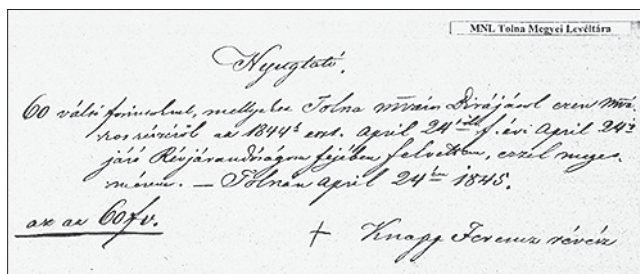 MNL Tolna Megyei Levéltára
Nyugtató.
60 váltó forintokrul, mellyeket Tolna Birájátol ezen
részéről az 1844 april 24 f. évi April 24
járó Révjárandóságom fejében felvettem, ezzel
mérem. — Tolnán april 24 1845.
az az 60 fv.
+ Knapp Ferencz révész